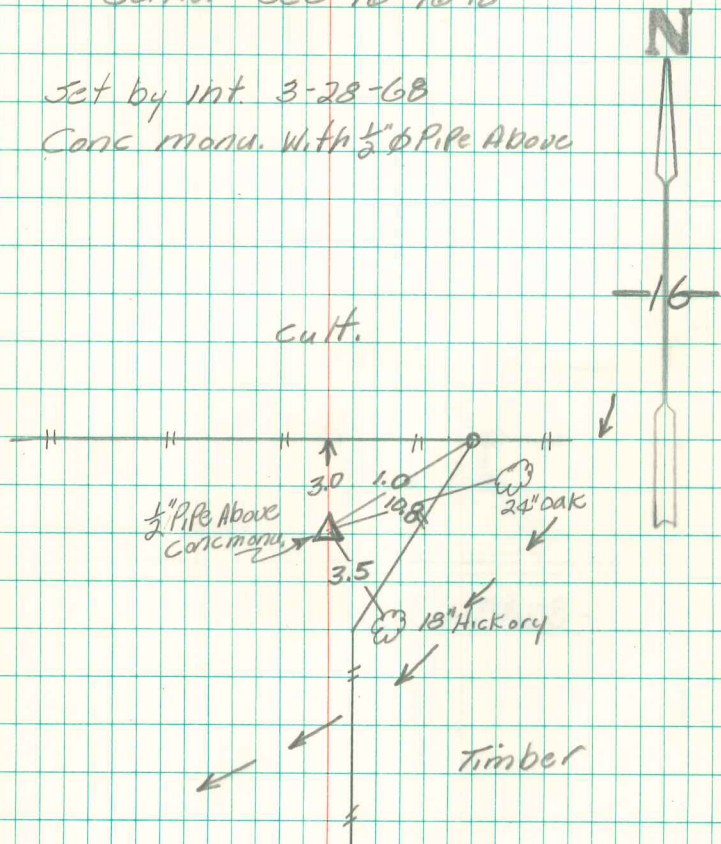 N
Set by Int. 3-28-68
Conc monu. With ½"ϕ Pipe Above
16
Cult.
3.0
1.0
10.8
24" Oak
½" Pipe Above
Conc monu.
3.5
18" Hickory
Timber